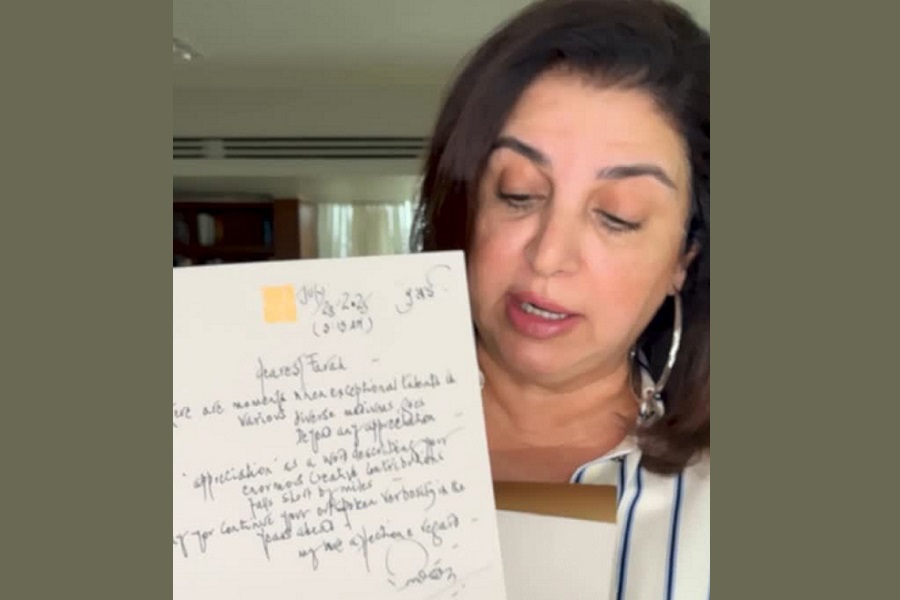 July
(3:19 AM)
Dearest Farah -
ere are moments when exceptional talents in
various diverse mediums
beyond any appreciation -
'appreciation' as a word describing your
enormous creative contributions
falls short by miles -
you continue your outspoken verbosity in the
years ahead
my love affection & regard -